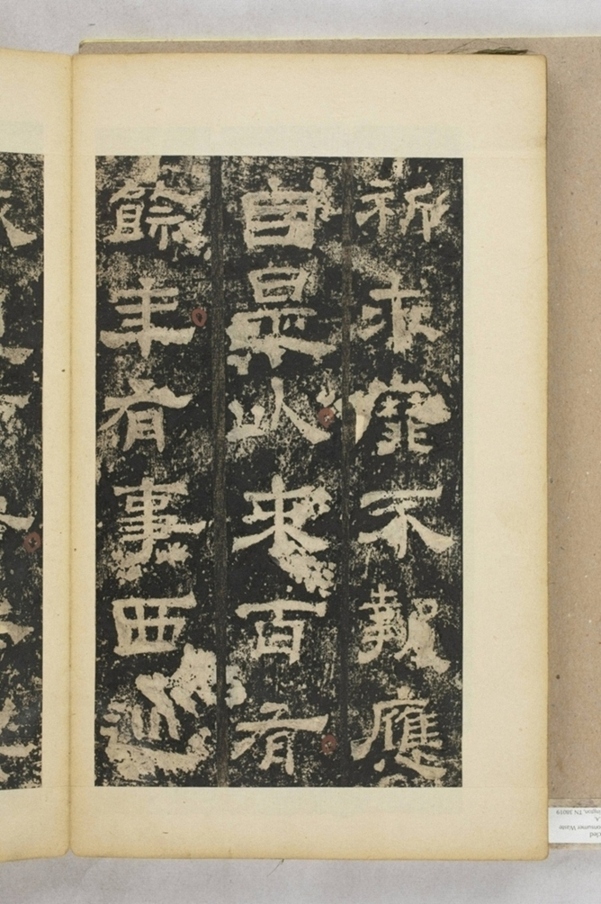 祈求靡不報應
自是以來百有
餘年有事西巡